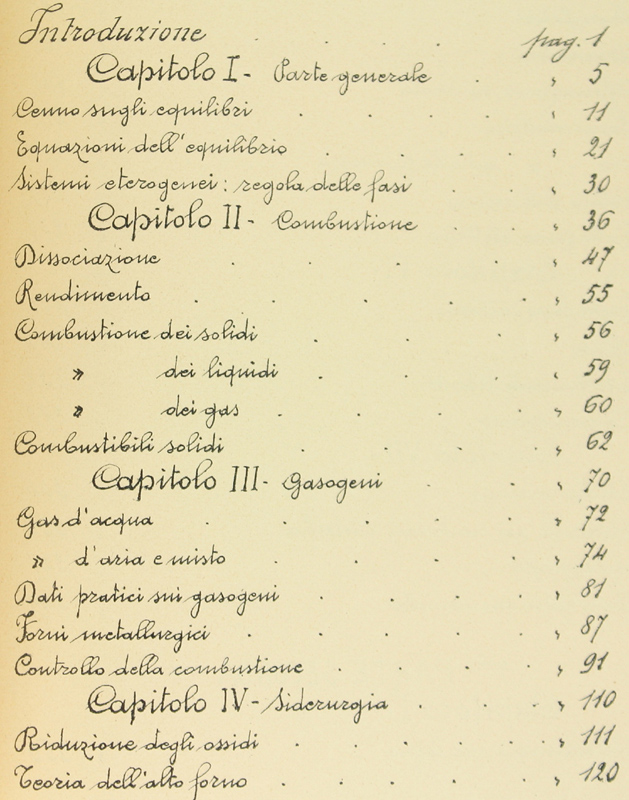 Introduzione . . . . pag. 1
Capitolo I - Parte generale . „ 5
Cenno sugli equilibri . . . . „ 11
Equazioni dell'equilibrio . . . . „ 21
Sistemi eterogenei: regola delle fasi . . „ 30
Capitolo II - Combustione . . „ 36
Dissociazione . . . . „ 47
Rendimento . . . . . „ 55
Combustione dei solidi . . . „ 56
» dei liquidi . . . „ 59
» dei gas . . . . „ 60
Combustibili solidi . . . . „ 62
Capitolo III - Gasogeni . . „ 70
Gas d'acqua . . . . . „ 72
» d'aria e misto . . . . „ 74
Dati pratici sui gasogeni . . . . „ 81
Forni metallurgici . . . . . „ 87
Controllo della combustione . . . . „ 91
Capitolo IV - Siderurgia . . . „ 110
Riduzione degli ossidi . . . . „ 111
Teoria dell'alto forno . . . . „ 120